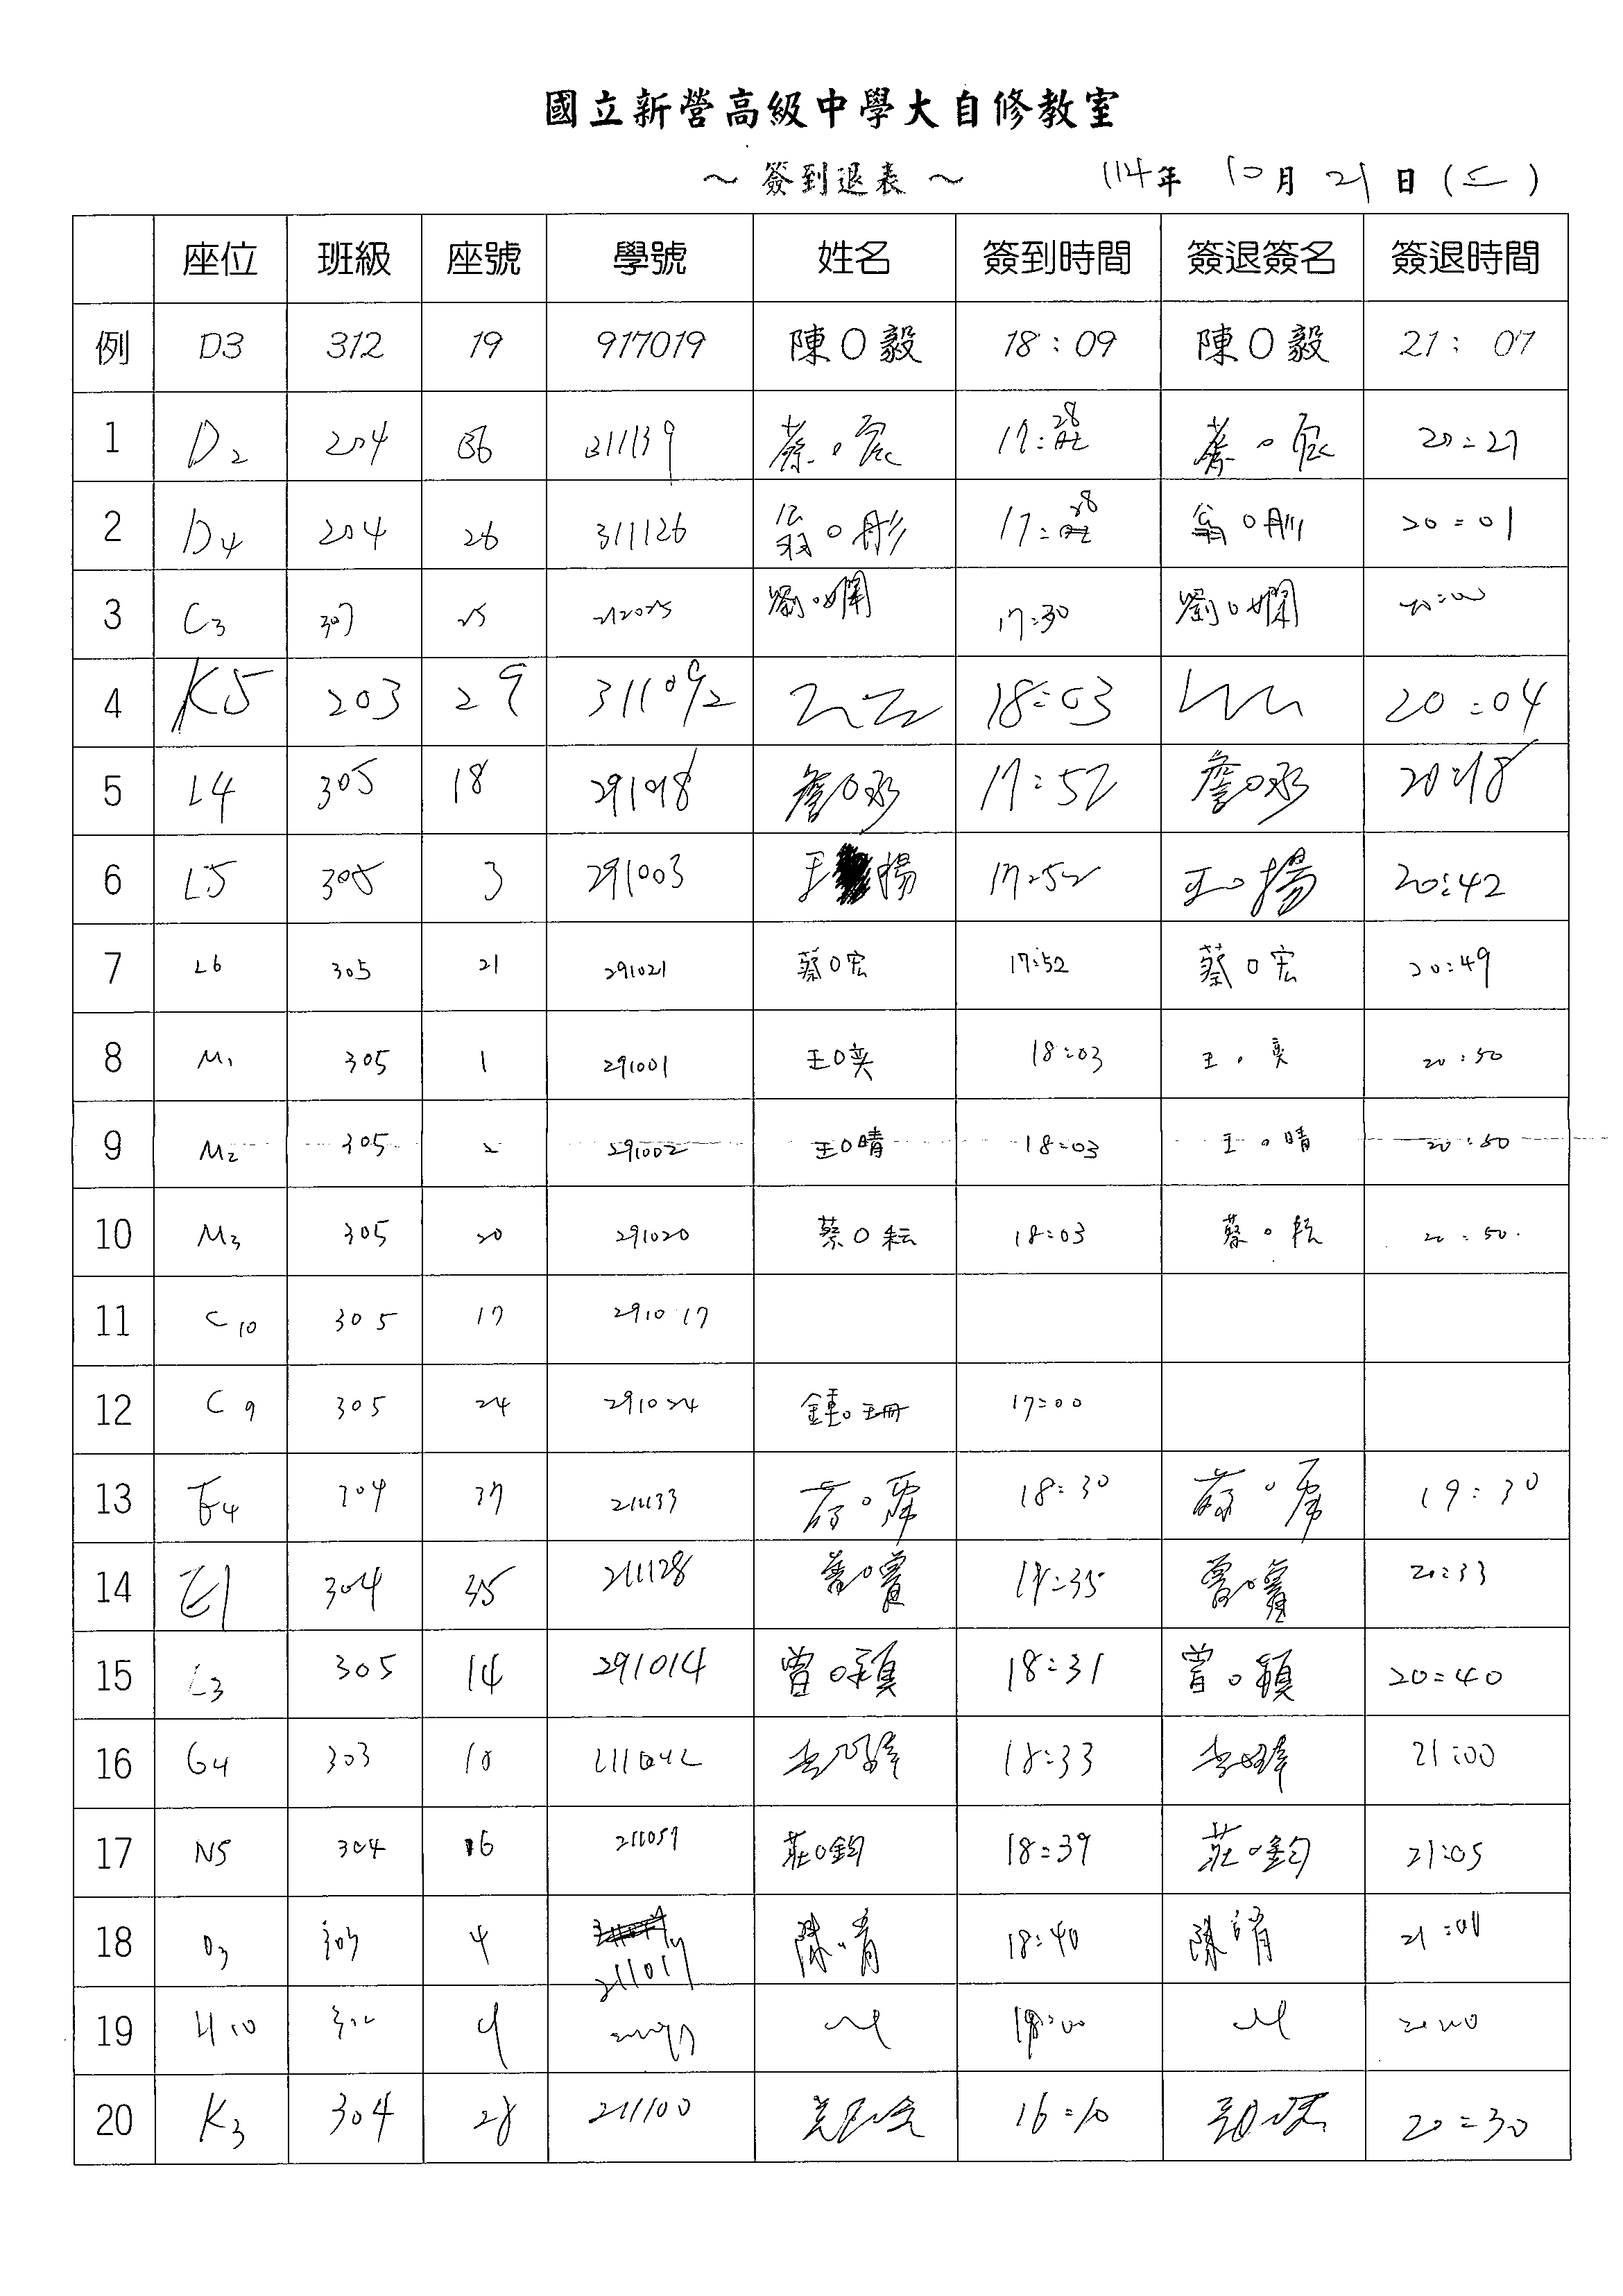 國立新營高級中學大自修教室
～ 簽到退表 ～ 114年 10月 21日 ( )
座位 班級 座號 學號 姓名 簽到時間 簽退簽名 簽退時間
例 D3 312 19 917019 陳O毅 18:09 陳O毅 21:07
1 D2 204 36 311139 蔡O宸 17:28 蔡O宸 20:27
2 D4 204 26 311126 翁O彤 17:28 翁O彤 20:01
3 C3 307 25 212025 劉O嫻 17:30 劉O嫻 20:00
4 K5 203 29 311092 18:03 20:04
5 L4 305 18 291018 詹O 17:52 詹O 20:18
6 L5 305 3 291003 王 揚 17:52 王O揚 20:42
7 L6 305 21 291021 蔡O宏 17:52 蔡O宏 20:49
8 M1 305 1 291001 王O奕 18:03 王O奕 20:50
9 M2 305 2 291002 王O晴 18:03 王O晴 20:50
10 M3 305 20 291020 蔡O耘 18:03 蔡O耘 20:50
11 C10 305 17 291017
12 C9 305 24 291024 鍾O珊 17:00
13 E4 304 37 211133 18:30 19:30
14 E1 304 35 211128 曾O寶 35 曾O寶 20:33
15 L3 305 14 291014 曾O穎 18:31 曾O穎 20:40
16 G4 303 18 18:33 21:00
17 N5 304 16 211059 莊O鈞 18:39 莊O鈞 21:05
18 D3 303 4 211017 陳 18:40 陳 21:01
19 H10
20 K3 304 28 211100 16:10 20:30